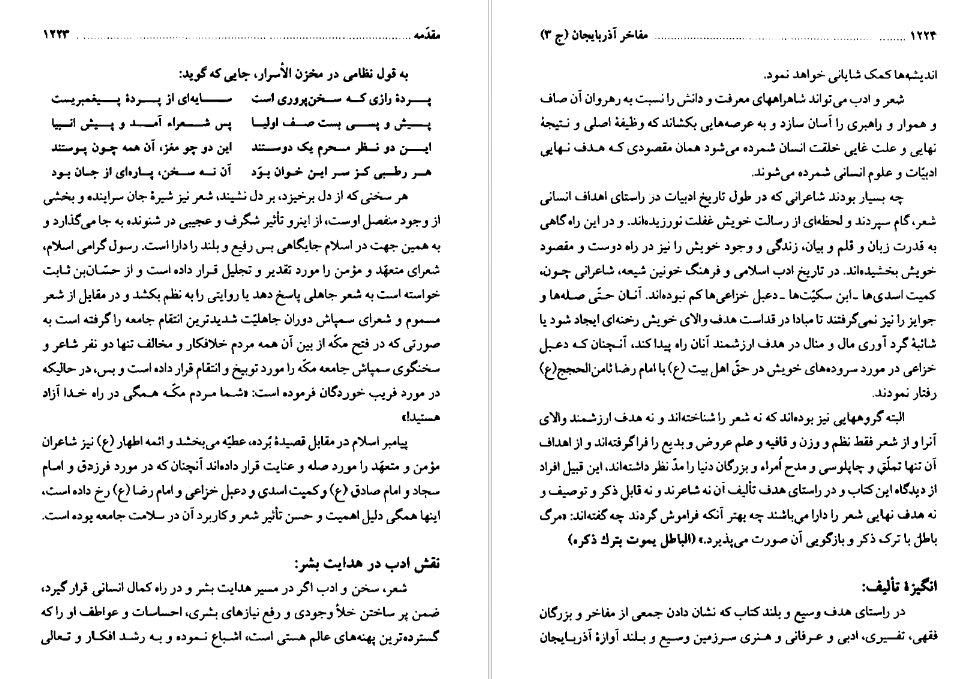 مقدّمه ........ ۱۲۲۳
به قول نظامی در مخزن الأسرار، جایی که گوید:
پردهٔ رازی که سخن‌پروری است    سایه‌ای از پردهٔ پیغمبریست
پیش و پسی بست صف اولیا    پس شعراء آمد و پیش انبیا
این دو نظر محرم یک دوستند    این دو چو مغز، آن همه چون پوستند
هر رطبی کز سر این خوان بوَد    آن نه سخن، پاره‌ای از جان بود
هر سخنی که از دل برخیزد، بر دل نشیند، شعر نیز شیرهٔ جان سراینده و بخشی
از وجود منفصل اوست، از اینرو تأثیر شگرف و عجیبی در شنونده به جا می‌گذارد و
به همین جهت در اسلام جایگاهی بس رفیع و بلند را دارا است. رسول گرامی اسلام،
شعرای متعهّد و مؤمن را مورد تقدیر و تجلیل قرار داده است و از حسّان‌بن ثابت
خواسته است به شعر جاهلی پاسخ دهد یا روایتی را به نظم بکشد و در مقابل از شعر
مسموم و شعرای سمپاش دوران جاهلیّت شدیدترین انتقام جامعه را گرفته است به
صورتی که در فتح مکّه از بین آن همه مردم خلافکار و مخالف تنها دو نفر شاعر و
سخنگوی سمپاش جامعه مکّه را مورد توبیخ و انتقام قرار داده است و بس، در حالیکه
در مورد فریب خوردگان فرموده است: «شما مردم مکّه همگی در راه خدا آزاد
هستید!»
پیامبر اسلام در مقابل قصیدهٔ بُرده، عطیّه می‌بخشد و ائمه اطهار (ع) نیز شاعران
مؤمن و متعهّد را مورد صله و عنایت قرار داده‌اند آنچنان که در مورد فرزدق و امام
سجاد و امام صادق (ع) و کمیت اسدی و دعبل خزاعی و امام رضا (ع) رخ داده است،
اینها همگی دلیل اهمیت و حسن تأثیر شعر و کاربرد آن در سلامت جامعه بوده است.
نقش ادب در هدایت بشر:
شعر، سخن و ادب اگر در مسیر هدایت بشر و در راه کمال انسانی قرار گیرد،
ضمن پر ساختن خلأ وجودی و رفع نیازهای بشری، احساسات و عواطف او را که
گسترده‌ترین پهنه‌های عالم هستی است، اشباع نموده و به رشد افکار و تعالی
۱۲۲۴ ........ مفاخر آذربایجان (ج ۳)
اندیشه‌ها کمک شایانی خواهد نمود.
شعر و ادب می‌تواند شاهراههای معرفت و دانش را نسبت به رهروان آن صاف
و هموار و راهبری را آسان سازد و به عرصه‌هایی بکشاند که وظیفهٔ اصلی و نتیجهٔ
نهایی و علت غایی خلقت انسان شمرده می‌شود همان مقصودی که هدف نهایی
ادبیّات و علوم انسانی شمرده می‌شوند.
چه بسیار بودند شاعرانی که در طول تاریخ ادبیات در راستای اهداف انسانی
شعر، گام سپردند و لحظه‌ای از رسالت خویش غفلت نورزیده‌اند. و در این راه گاهی
به قدرت زبان و قلم و بیان، زندگی و وجود خویش را نیز در راه دوست و مقصود
خویش بخشیده‌اند. در تاریخ ادب اسلامی و فرهنگ خونین شیعه، شاعرانی چون،
کمیت اسدی‌ها ـ ابن سکیّت‌ها ـ دعبل خزاعی‌ها کم نبوده‌اند. آنان حتّی صله‌ها و
جوایز را نیز نمی‌گرفتند تا مبادا در قداست هدف والای خویش رخنه‌ای ایجاد شود یا
شائبهٔ گرد آوری مال و منال در هدف ارزشمند آنان راه پیدا کند، آنچنان که دعبل
خزاعی در مورد سروده‌های خویش در حقّ اهل بیت (ع) با امام رضا ثامن‌الحجج(ع)
رفتار نمودند.
البته گروههایی نیز بوده‌اند که نه شعر را شناخته‌اند و نه هدف ارزشمند والای
آنرا و از شعر فقط نظم و وزن و قافیه و علم عروض و بدیع را فراگرفته‌اند و از اهداف
آن تنها تملّق و چاپلوسی و مدح اُمراء و بزرگان دنیا را مدّ نظر داشته‌اند، این قبیل افراد
از دیدگاه این کتاب و در راستای هدف تألیف آن نه شاعرند و نه قابل ذکر و توصیف و
نه هدف نهایی شعر را دارا می‌باشند چه بهتر آنکه فراموش گردند چه گفته‌اند: «مرگ
باطل با ترک ذکر و بازگویی آن صورت می‌پذیرد.» (الباطل یموت بترك ذكره)
انگیزهٔ تألیف:
در راستای هدف وسیع و بلند کتاب که نشان دادن جمعی از مفاخر و بزرگان
فقهی، تفسیری، ادبی و عرفانی و هنری سرزمین وسیع و بلند آوازهٔ آذربایجان